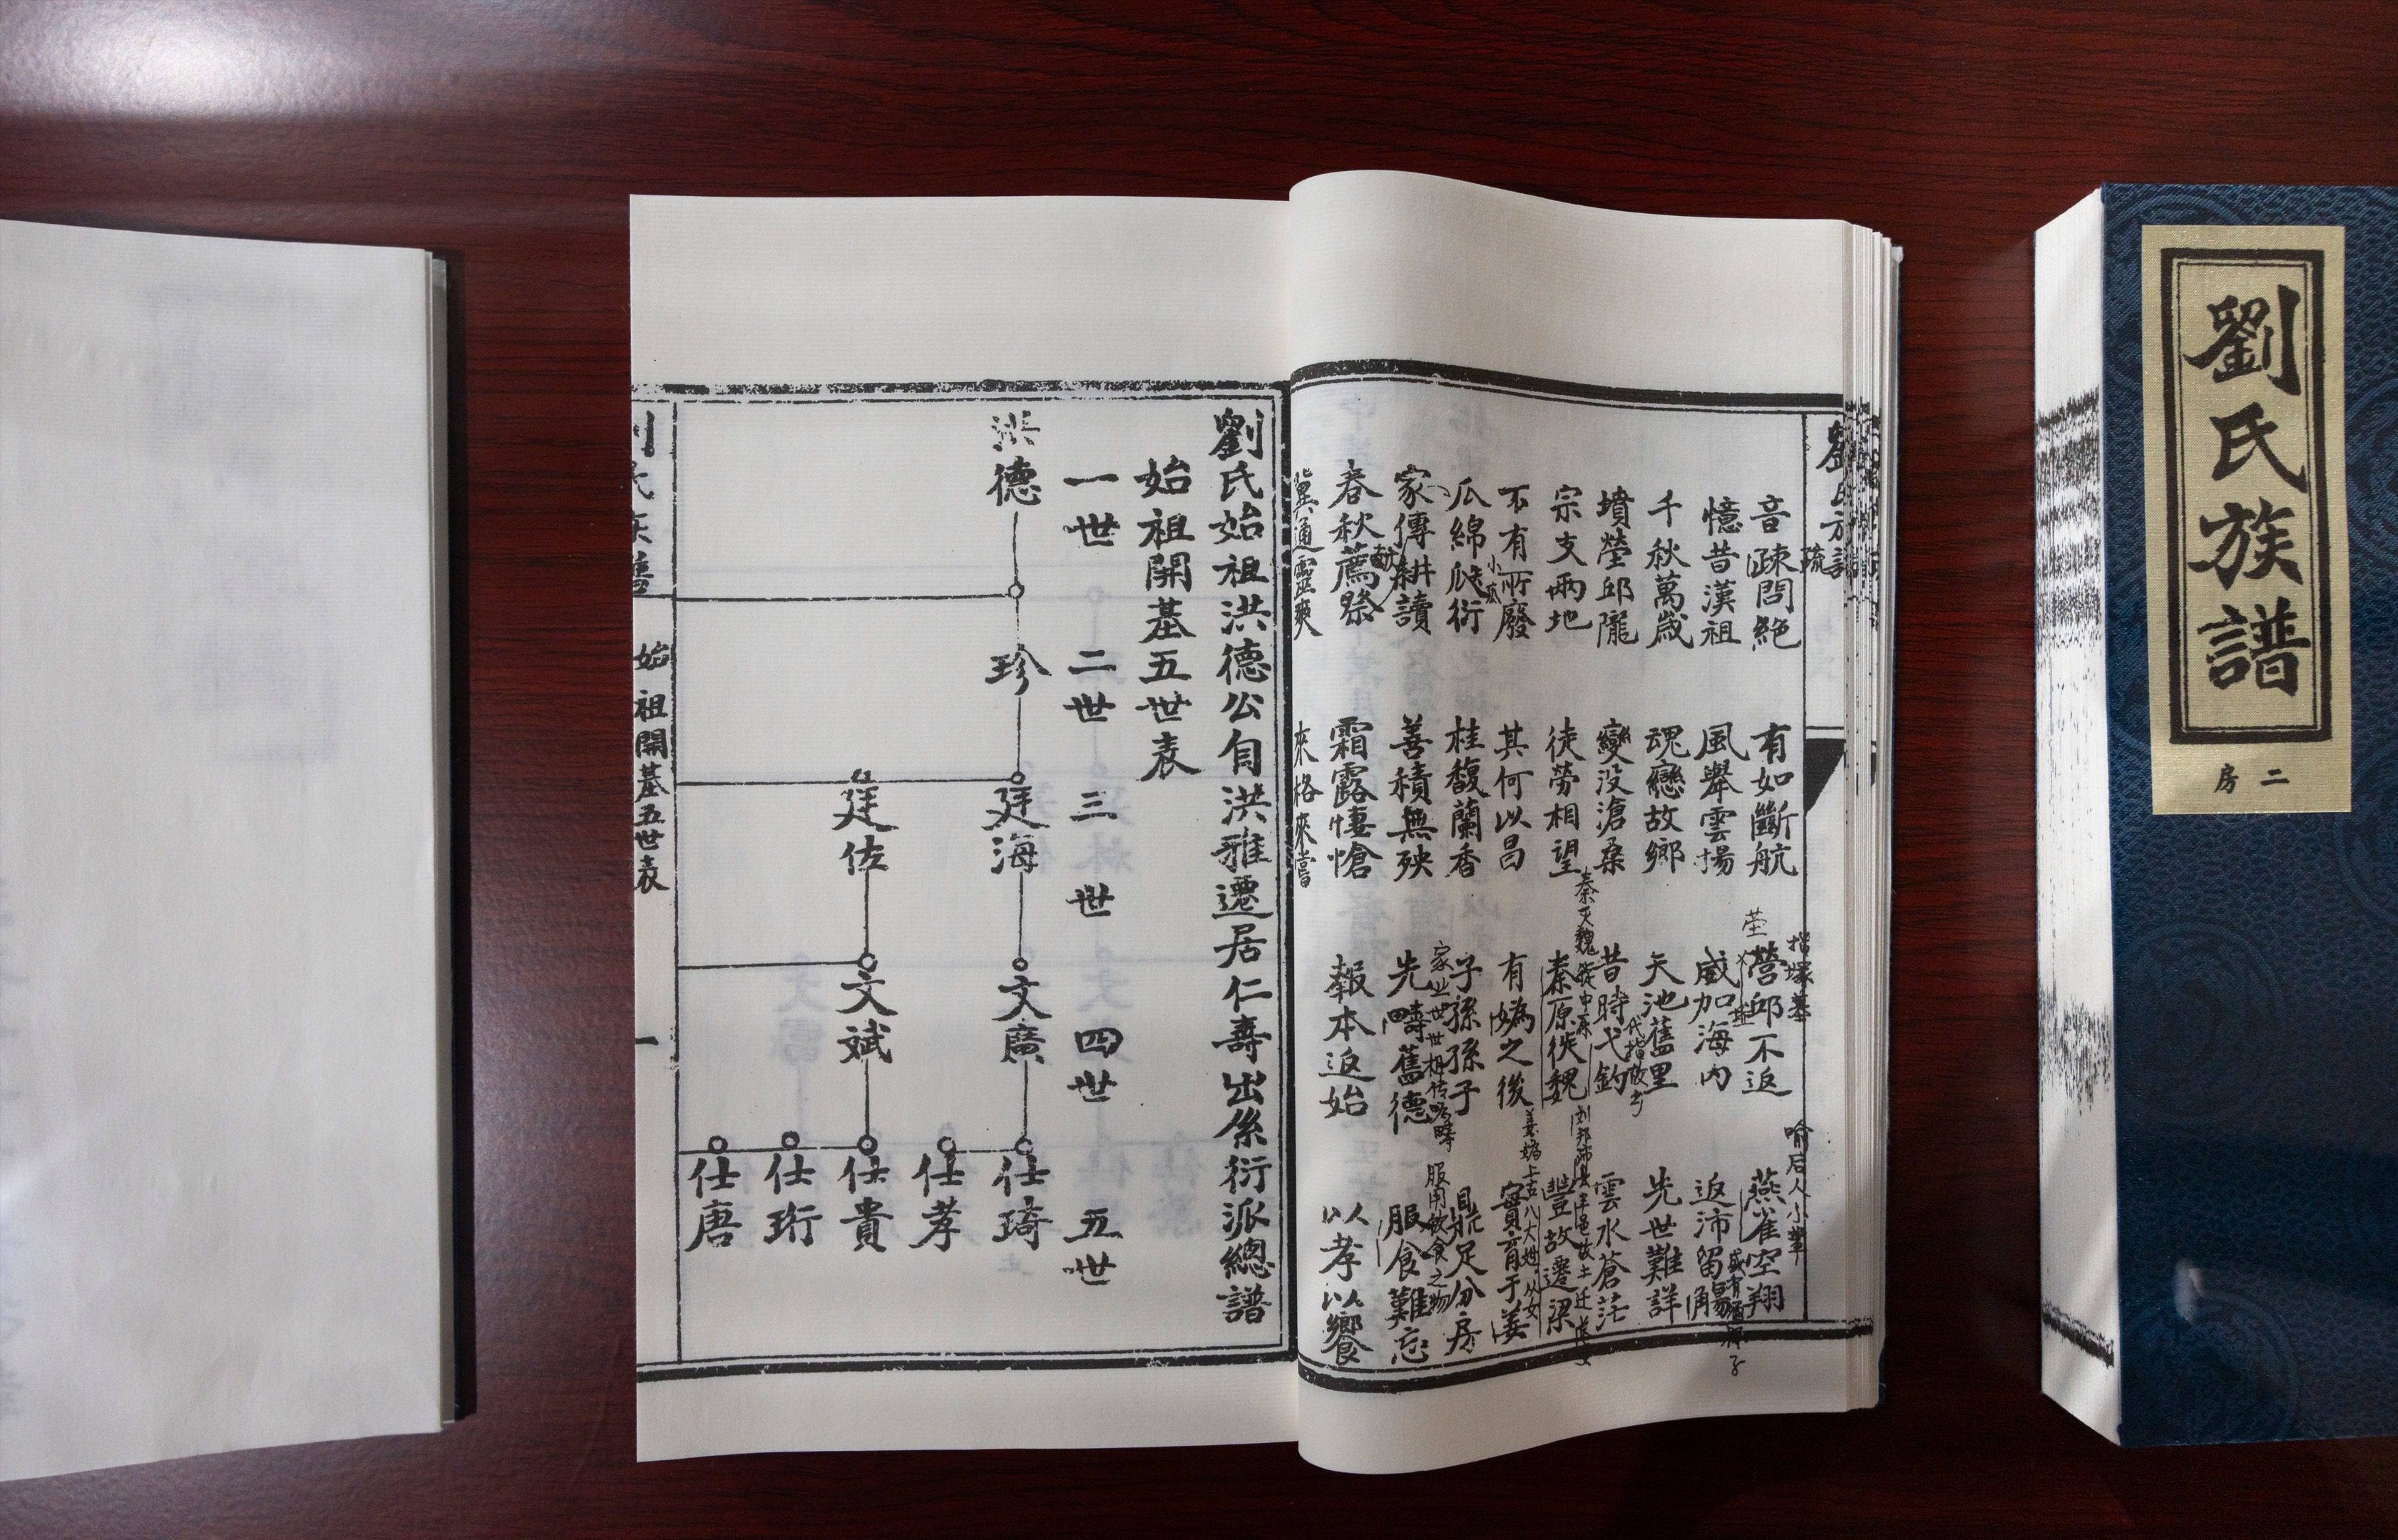 劉氏族譜
二房
音疎問絶 有如斷航 營邱不返 燕雀空翔
憶昔漢祖 風舉雲揚 威加海内 返沛留觴
千秋萬歳 魂戀故鄉 天池舊里 先世難詳
墳塋邱隴 變没滄桑 昔時弋釣 雲水蒼茫
宗支兩地 徒勞相望 秦原徙魏 豐故遷梁
不有所廢 其何以昌 有媯之後 實育于姜
瓜綿瓞衍 桂馥蘭香 子孫孫子 鼎足分房
家傳耕讀 善積無殃 先疇舊德 服食難忘
春秋薦祭 霜露悽愴 報本返始 以孝以饗
冀通靈爽 來格來嘗
疏
指塚墓
喻后人小輩
代指故乡
小瓜
献
家业世世相传
服用飲食之物
劉氏始祖洪德公自洪雅遷居仁壽出系衍派總譜
始祖開基五世表
一世 二世 三世 四世 五世
洪德 珍 廷海 文廣 仕琦
仕孝
廷佐 文斌 仕貴
仕珩
仕唐
始祖開基五世表 一